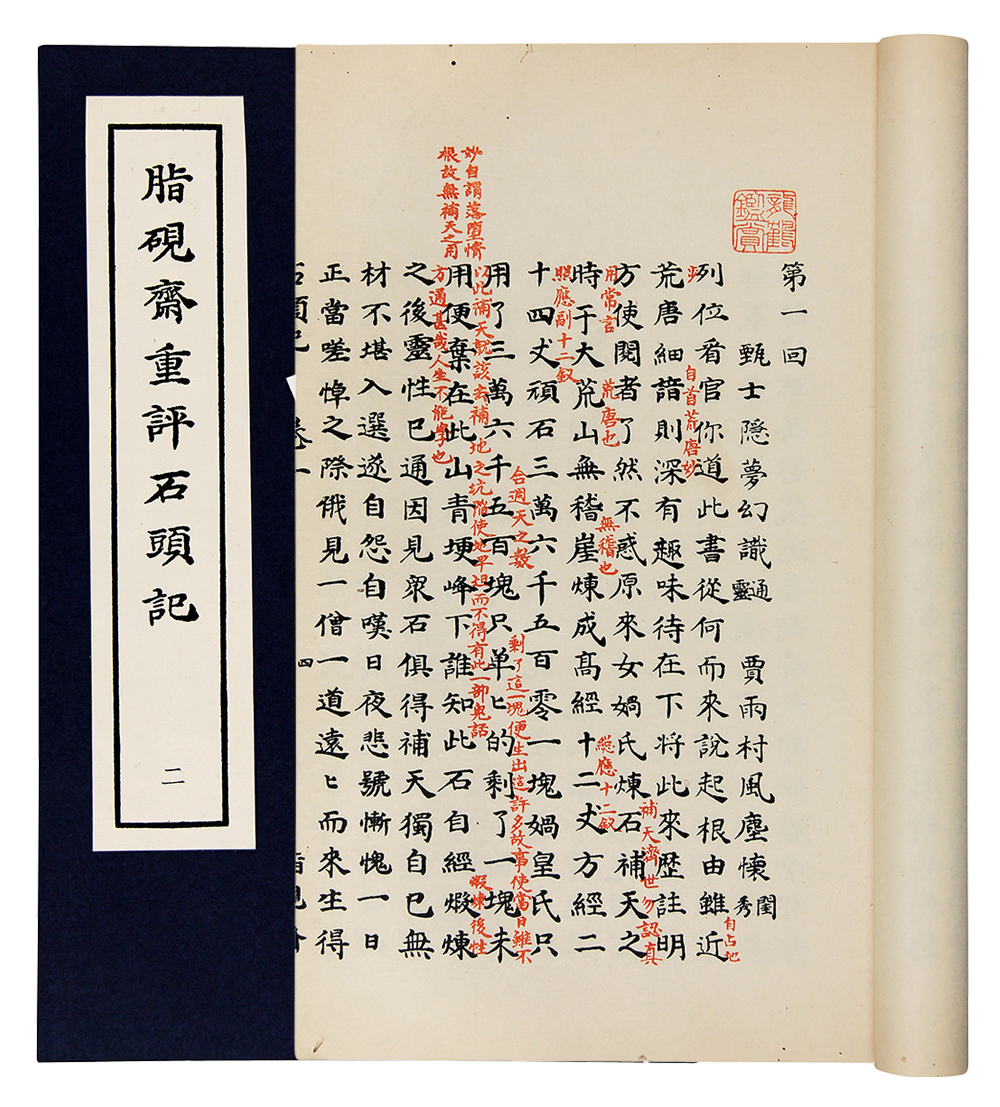 脂硯齋重評石頭記
二
鑑賞
第一回
甄士隱夢幻識通靈 賈雨村風塵懷閨秀
列位看官你道此書從何而來說起根由雖近
自占地
妙
自首荒唐妙
荒唐細諳則深有趣味待在下將此來歷註明
補天濟世勿認真
方使閱者了然不惑原來女媧氏煉石補天之
用常言
荒唐也
無稽也
總應十二釵
時于大荒山無稽崖煉成高經十二丈方經二
照應副十二釵
十四丈頑石三萬六千五百零一塊媧皇氏只
合週天之數
剩了這一塊便生出這許多故事使當日雖不
用了三萬六千五百塊只单匕的剩了一塊未
以此補天就該去補地之坑陷使地平坦而不得有此一部鬼話
妙自謂落墮情
根故無補天之用
用便棄在此山青埂峰下誰知此石自經煅煉
煅煉後性
方通甚哉人生不能學也
之後靈性已通因見眾石俱得補天獨自己無
材不堪入選遂自怨自嘆日夜悲號慚愧一日
正當嗟悼之際俄見一僧一道遠匕而來生得
石頭記 卷一 四